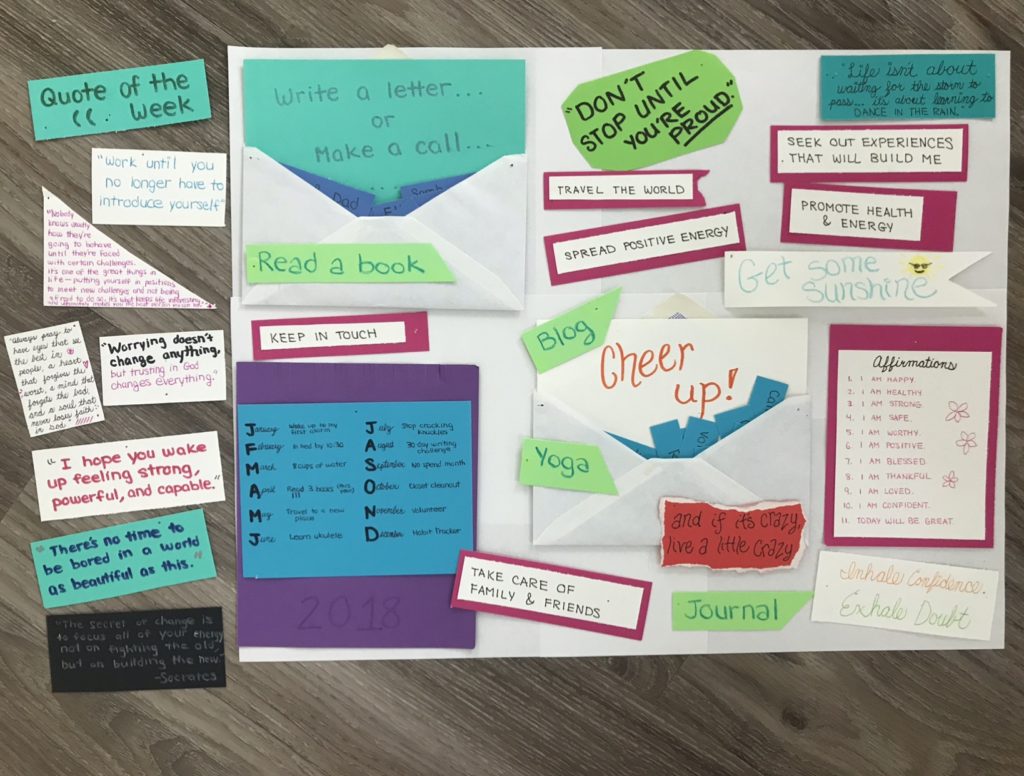 Quote of the
Week
"Work until you
no longer have to
introduce yourself"
"Nobody
knows exactly
how they're
going to behave
until they're faced
with certain challenges.
It's one of the great things in
life—putting yourself in positions
to meet new challenges and not being
afraid to do so. It's what keeps life interesting,
and ultimately makes you the best person you can be."
"Always pray to
have eyes that see
the best in
people, a heart
that forgives the
worst, a mind that
forgets the bad,
and a soul that
never loses faith
in God."
"Worrying doesn't
change anything,
but trusting in God
changes everything."
"I hope you wake
up feeling strong,
powerful, and capable."
"There's no time to
be bored in a world
as beautiful as this."
"The secret of change is
to focus all of your energy
not on fighting the old,
but on building the new."
-Socrates
Write a letter...
or
Make a call...
Dad
Sarah
Read a book
KEEP IN TOUCH
January Wake up to my
first alarm
February In bed by 10:30
March 8 cups of water
April Read 3 books (this year)
!!!
May Travel to a new
place
June Learn ukulele
July Stop cracking
knuckles
August 30 day writing
challenge
September No spend month
October Closet cleanout
November Volunteer
December Habit Tracker
2018
"DON'T
STOP UNTIL
YOU'RE
PROUD."
TRAVEL THE WORLD
SPREAD POSITIVE ENERGY
"Life isn't about
waiting for the storm to
pass... it's about learning to
DANCE IN THE RAIN."
SEEK OUT EXPERIENCES
THAT WILL BUILD ME
PROMOTE HEALTH
& ENERGY
Get some
sunshine
Blog
Cheer
up!
Yoga
and if it's crazy,
live a little crazy
TAKE CARE OF
FAMILY & FRIENDS
Journal
Affirmations
1. I AM HAPPY.
2. I AM HEALTHY.
3. I AM STRONG.
4. I AM SAFE.
5. I AM WORTHY.
6. I AM POSITIVE.
7. I AM BLESSED.
8. I AM THANKFUL.
9. I AM LOVED.
10. I AM CONFIDENT.
11. TODAY WILL BE GREAT.
Inhale Confidence.
Exhale Doubt